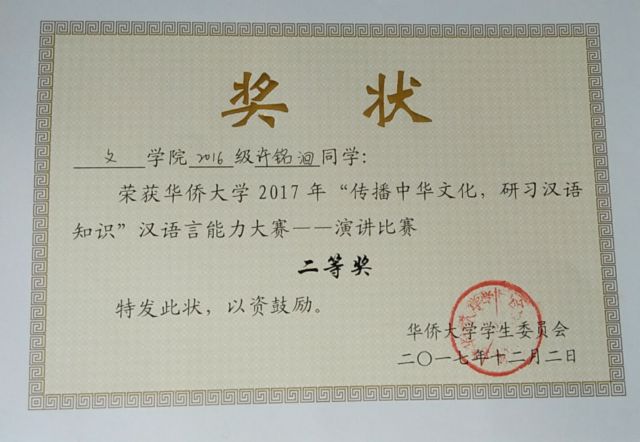 奖 状
文 学院 2016 级 许铭洄 同学:
荣获华侨大学 2017 年“传播中华文化, 研习汉语
知识”汉语言能力大赛——演讲比赛
二等奖
特发此状, 以资鼓励。
华侨大学学生委员会
二〇一七年十二月二日